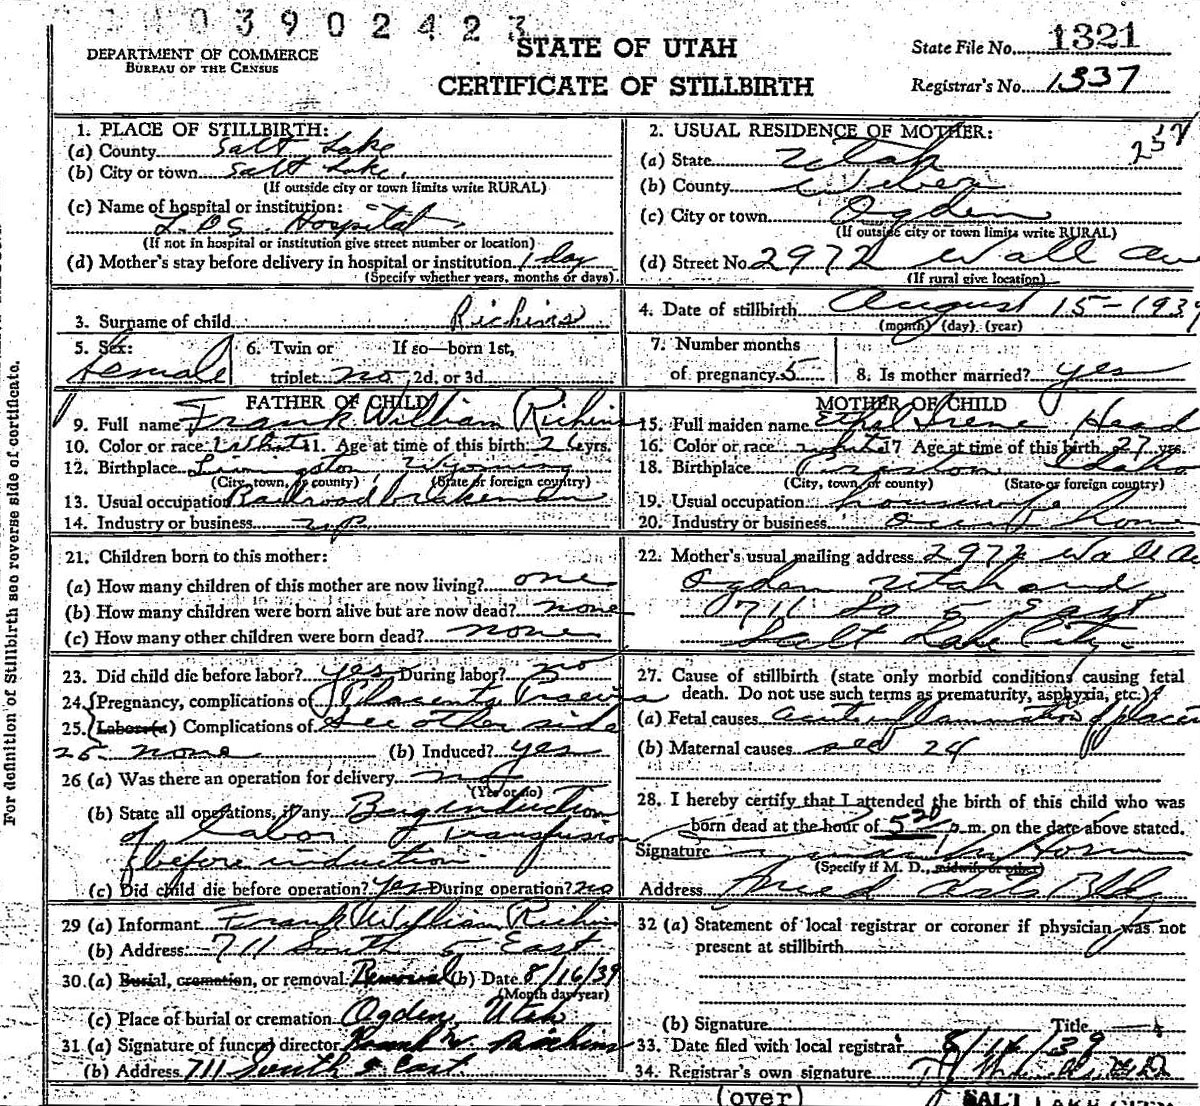 1 1 0 3 9 0 2 4 2 3
DEPARTMENT OF COMMERCE
BUREAU OF THE CENSUS
STATE OF UTAH
CERTIFICATE OF STILLBIRTH
State File No. 1321
Registrar's No. 1337
1. PLACE OF STILLBIRTH:
(a) County Salt Lake
(b) City or town Salt Lake.
(If outside city or town limits write RURAL)
(c) Name of hospital or institution:
L.D.S. Hospital
(If not in hospital or institution give street number or location)
(d) Mother's stay before delivery in hospital or institution 1 day
(Specify whether years, months or days)
2. USUAL RESIDENCE OF MOTHER:
(a) State Utah
(b) County Weber
(c) City or town Ogden
(If outside city or town limits write RURAL)
(d) Street No. 2972 Wall Av
(If rural give location)
3. Surname of child Richins
4. Date of stillbirth August 15-1939
(month) (day) (year)
5. Sex: Female
6. Twin or If so—born 1st,
triplet no 2d, or 3d
7. Number months
of pregnancy 5
8. Is mother married? yes
FATHER OF CHILD
9. Full name Frank William Richins
10. Color or race White 11. Age at time of this birth 26 yrs.
12. Birthplace Wyoming
(City, town, or county) (State or foreign country)
13. Usual occupation Railroad brakeman
14. Industry or business U P
MOTHER OF CHILD
15. Full maiden name Ethel Irene Head
16. Color or race white 17 Age at time of this birth 27 yrs.
18. Birthplace Idaho
(City, town, or county) (State or foreign country)
19. Usual occupation housewife
20. Industry or business own home
21. Children born to this mother:
(a) How many children of this mother are now living? one
(b) How many children were born alive but are now dead? none
(c) How many other children were born dead? none
22. Mother's usual mailing address 2972 Wall Av
Ogden Utah and
711 So 5 East
Salt Lake City
23. Did child die before labor? yes During labor? no
24. Pregnancy, complications of Placenta Praevia
25. Labor: (a) Complications of See other side
25- none (b) Induced? yes
26 (a) Was there an operation for delivery no
(Yes or no)
(b) State all operations, if any Bag induction
of labor Transfusion
before induction
(c) Did child die before operation? Yes During operation? no
27. Cause of stillbirth (state only morbid conditions causing fetal
death. Do not use such terms as prematurity, asphyxia, etc.)
(a) Fetal causes acute inflammation of placen
(b) Maternal causes see 24
28. I hereby certify that I attended the birth of this child who was
born dead at the hour of 5 30 p.m. on the date above stated.
Signature Horne
(Specify if M. D., midwife or other)
Address Med Arts Bldg
29 (a) Informant Frank William Richins
(b) Address 711 South 5 East
30. (a) Burial, cremation, or removal Removal (b) Date 8/16/39
(Month day year)
(c) Place of burial or cremation Ogden, Utah
31. (a) Signature of funeral director Frank W. Richins
(b) Address 711 South 5 East
32 (a) Statement of local registrar or coroner if physician was not
present at stillbirth
(b) Signature Title
33. Date filed with local registrar 8/16/39
34. Registrar's own signature
(over)
SALT LAKE CITY
For definition of Stillbirth see reverse side of certificate.